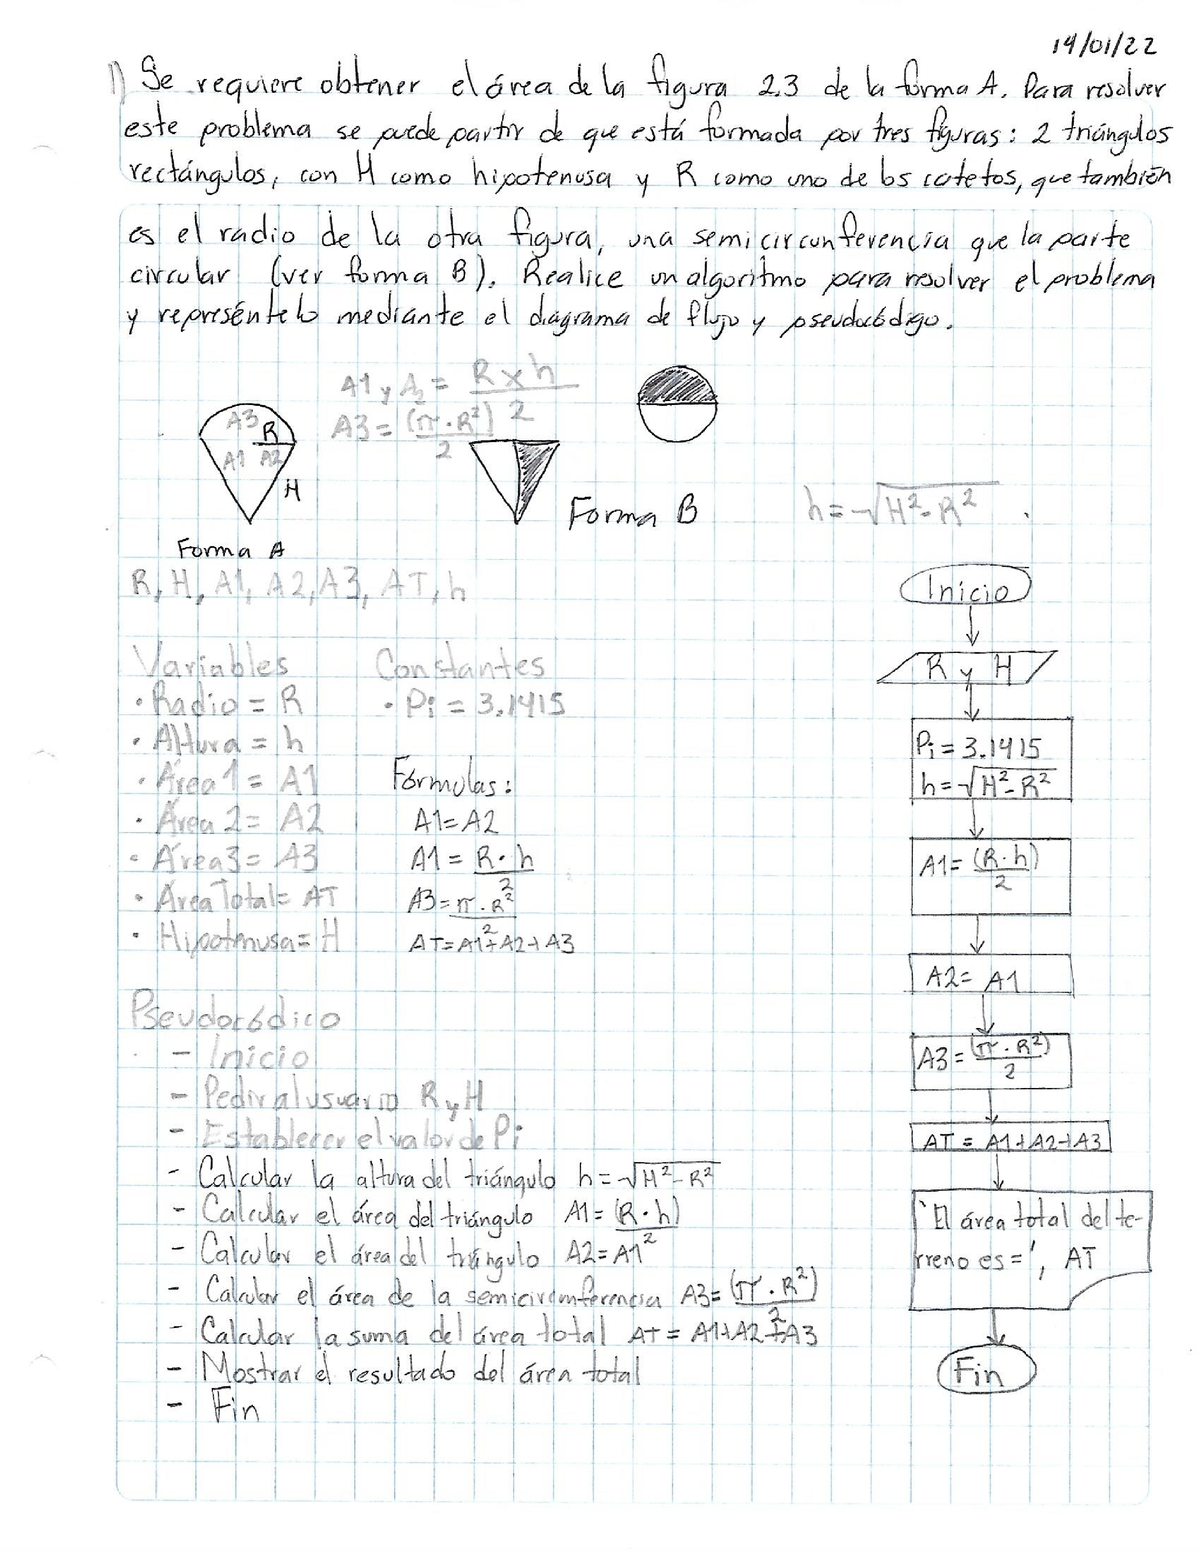 14/01/22
1) Se requiere obtener el área de la figura 2.3 de la forma A. Para resolver
este problema se puede partir de que está formada por tres figuras: 2 triángulos
rectángulos, con H como hipotenusa y R como uno de los catetos, que también
es el radio de la otra figura, una semicircunferencia que la parte
circular (ver forma B). Realice un algoritmo para resolver el problema
y represéntelo mediante el diagrama de flujo y pseudocódigo.
A1 y A2 = R x h / 2
A3 = (π · R²) / 2
A3 R
A1 A2
H
Forma A
Forma B
h = √H² - R²
R, H, A1, A2, A3, AT, h
Variables
· Radio = R
· Altura = h
· Área 1 = A1
· Área 2 = A2
· Área 3 = A3
· Área Total = AT
· Hipotenusa = H
Constantes
· Pi = 3.1415
Fórmulas:
A1 = A2
A1 = R · h / 2
A3 = π · R² / 2
AT = A1 + A2 + A3
Pseudocódico
- Inicio
- Pedir al usuario R y H
- Establecer el valor de Pi
- Calcular la altura del triángulo h = √H² - R²
- Calcular el área del triángulo A1 = (R · h) / 2
- Calcular el área del triángulo A2 = A1
- Calcular el área de la semicircunferencia A3 = (π · R²) / 2
- Calcular la suma del área total AT = A1 + A2 + A3
- Mostrar el resultado del área total
- Fin
Inicio
R y H
Pi = 3.1415
h = √H² - R²
A1 = (R · h) / 2
A2 = A1
A3 = (π · R²) / 2
AT = A1 + A2 + A3
'El área total del te-
rreno es =', AT
Fin